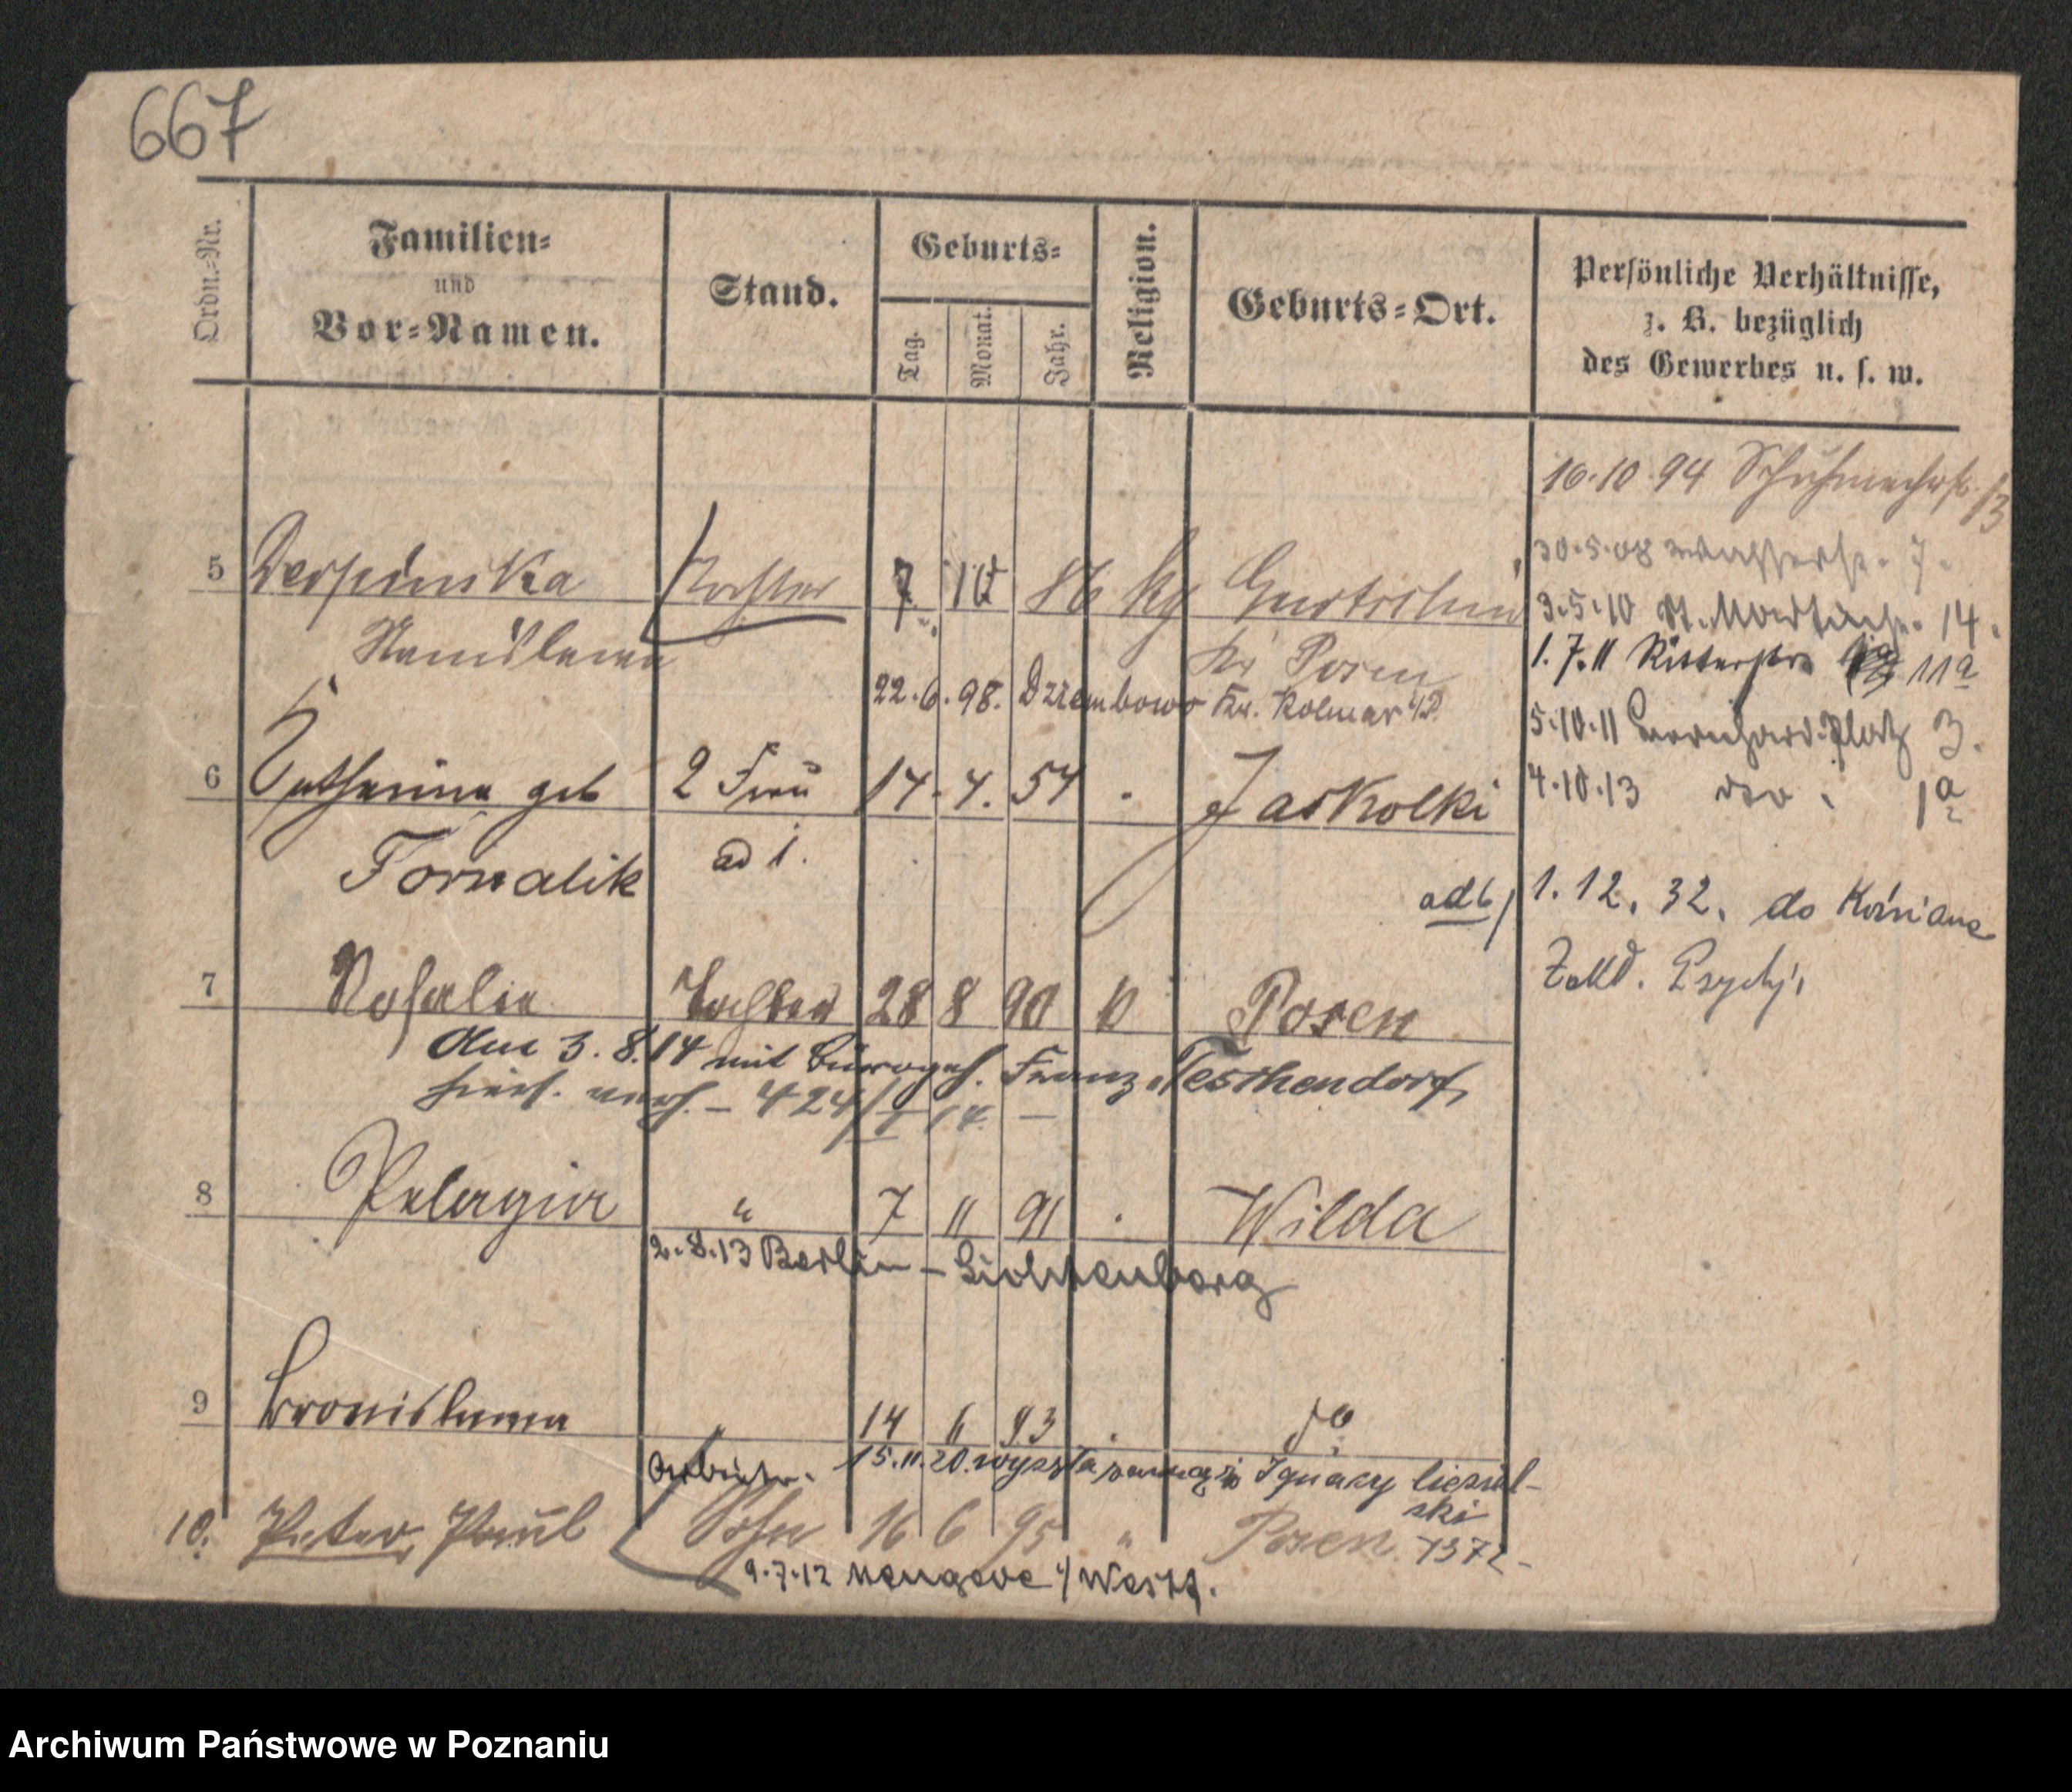 667
Ordn.-Nr.
Familien-
und
Vor-Namen.
Stand.
Geburts-
Tag.
Monat.
Jahr.
Religion.
Geburts-Ort.
Persönliche Verhältnisse,
z. B. bezüglich
des Gewerbes u. s. w.
16.10.94 Schuhmacherstr. 13
30.5.08 Wasserstr. 7.
5 Tochter 7 10 86 kg
Kr Posen
3.5.10 St. Martinstr. 14.
1.7.11 Ritterstr. 11a
22.6.98. Dziembowo Kr. Kolmar i/P.
5.10.11 Bernhard. Platz 3.
6 Katharina geb 2 Frau 14. 4. 54 . Jaskolki
4.10.13 do . 1a
Tornalik ad 1.
ad 6/ 1. 12. 32. do
Zakł. Psych.
7 Rosalie Tochter 28 8 90 k Posen
Am 3. 8. 14 mit Bürogeh. Franz Teschendorf,
hies. verh. – 424/I 14. –
8 Pelagia " 7 11 91 . Wilda
2.8.13 Berlin – Lichtenberg
9 Bronislawa " 14 6 93 . do
Arbeiter. 15.11.20. wyszła zamąż Ignacy Ciesiel-
ski
10. Peter, Paul Sohn 16 6 95 " Posen 1372-
9.7.12 Mengede i/Westf.
Archiwum Państwowe w Poznaniu